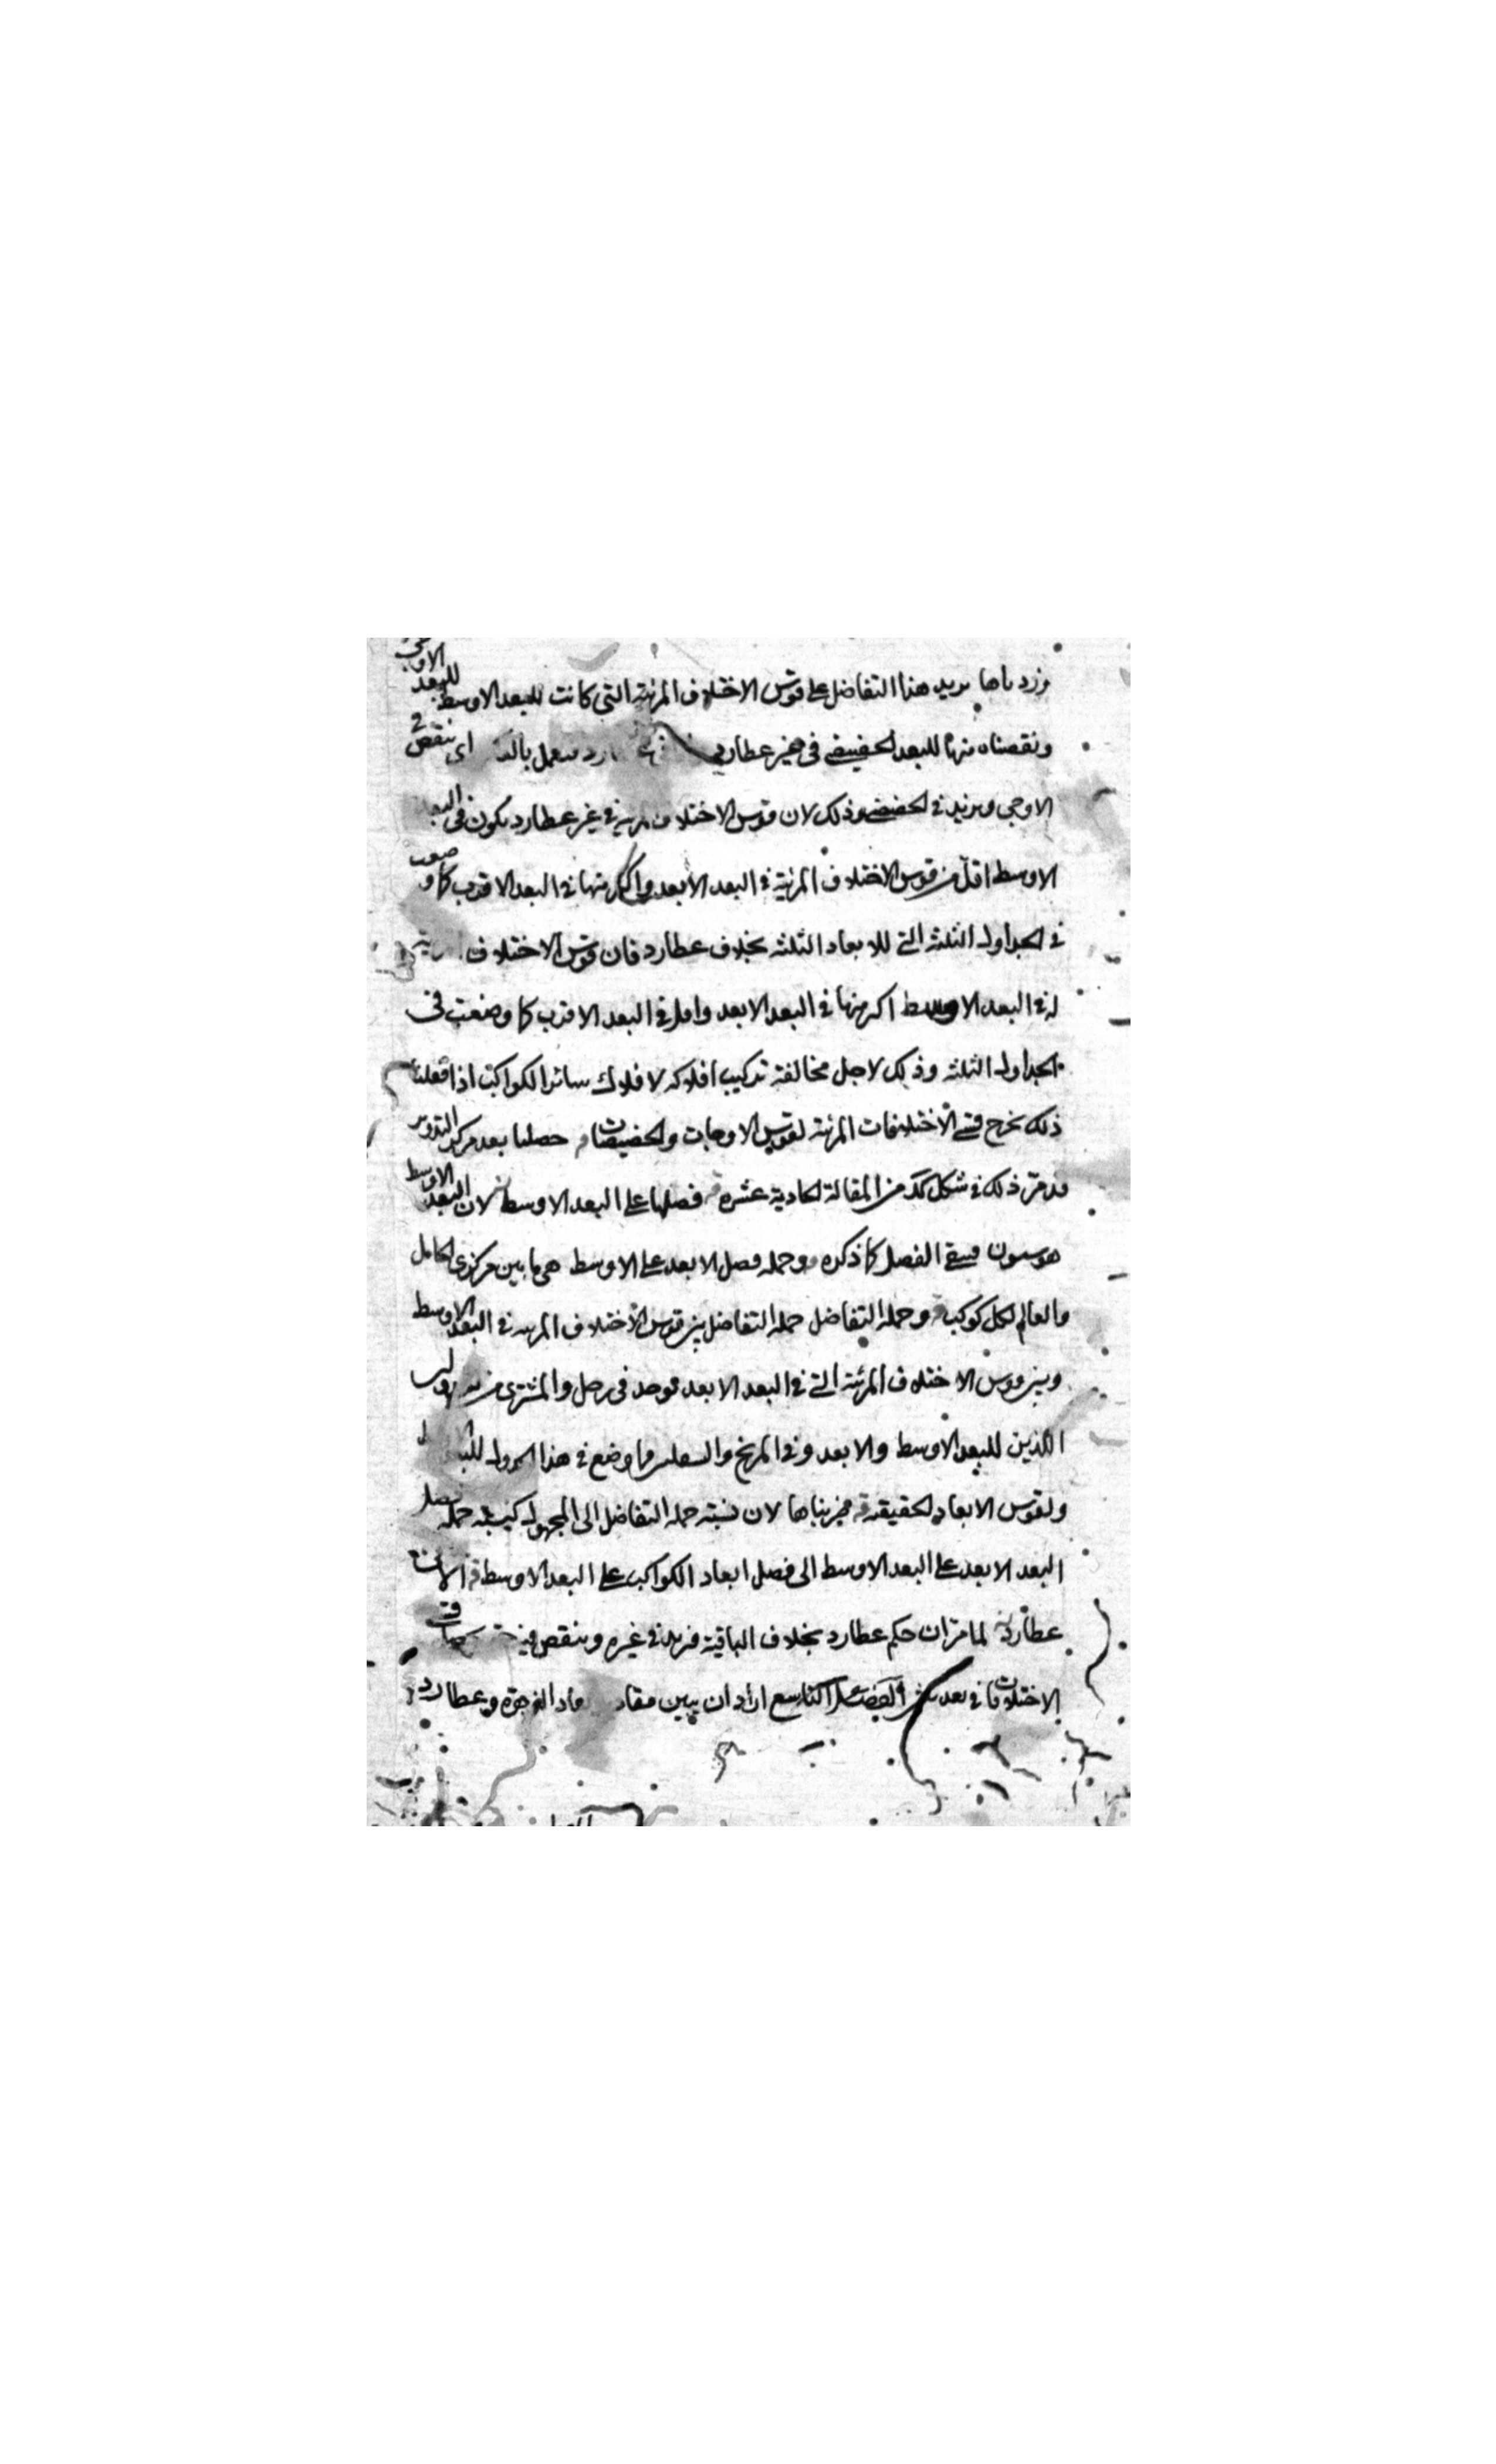 وزدناها يريد هذا التفاضل على قوس الاختلاف المرئية التي كانت للبعد الاوسط للبعد الاوجى
ونقصناه منها للبعد الحضيضى فى غير عطارد يعمل اى ينقص فى
الاوجى ويزيد فى الحضيضى وذلك لان قوس الاختلاف المرئية فى غير عطارد يكون فى البعد
الاوسط اقل من قوس الاختلاف المرئية فى البعد الابعد واكثر منها فى البعد الاقرب كما وضعت
فى الجداول الثلثة التى للابعاد الثلثة بخلاف عطارد فان قوس الاختلاف
له فى البعد الاوسط اكثر منها فى البعد الابعد واقل فى البعد الاقرب كما وضعت فى
الجداول الثلثة وذلك لاجل مخالفة تركيب افلاكه لافلاك سائر الكواكب اذا فعلنا
ذلك يخرج قسى الاختلافات المرئية لقوس الاوجات والحضيضات حصلنا بعد مركز التدوير
قد مر ذلك فى شكل من المقالة الحادية عشره فضلها على البعد الاوسط لان البعد الاوسط
هو ستون فيبقى الفضل كما ذكره وجملة فضل الابعد على الاوسط هى ما بين مركزى الحامل
والعالم لكل كوكب وجملة التفاضل جملة التفاضل بين قوس الاختلاف المرئية فى البعد الاوسط
وبين قوس الاختلاف المرئية التى فى البعد الابعد فوجد فى زحل والمشترى من
الذين للبعد الاوسط والابعد وفى المريخ والسفليين ما وضع فى هذا الجدول
ولقوس الابعاد الحقيقية فضربناها لان نسبة جملة التفاضل الى المجهول كنسبة جملة فضل
البعد الابعد على البعد الاوسط الى فضل ابعاد الكواكب على البعد الاوسط
عطارد لما مر ان حكم عطارد بخلاف الباقية فزيد فى غيره وينقص فيه
الاختلافات فى بعد الفصل التاسع اراد ان يبين الزهرة وعطارد